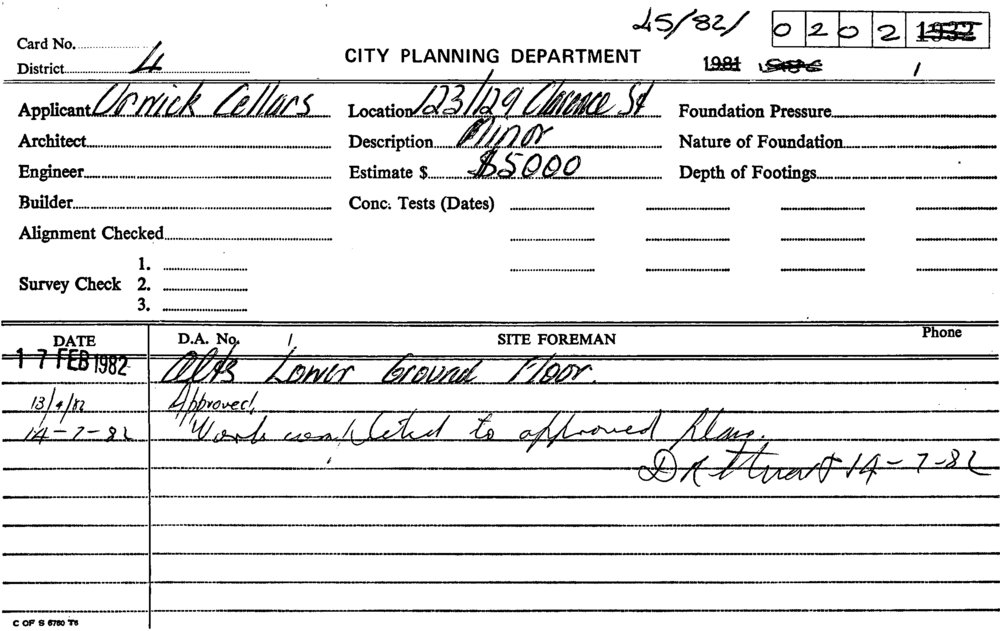 45/82/ 0 2 0 2 1932
Card No.
District 4 CITY PLANNING DEPARTMENT 1981
Applicant Orwick Cellars Location 123/129 Clarence St Foundation Pressure
Architect Description Minor Nature of Foundation
Engineer Estimate $ $5000 Depth of Footings
Builder Conc. Tests (Dates)
Alignment Checked
1.
Survey Check 2.
3.
DATE D.A. No. SITE FOREMAN Phone
17 FEB 1982 Alts Lower Ground Floor.
13/4/82 Approved.
14-7-82 Work completed to approved plans.
14-7-82
C OF S 6780 T6